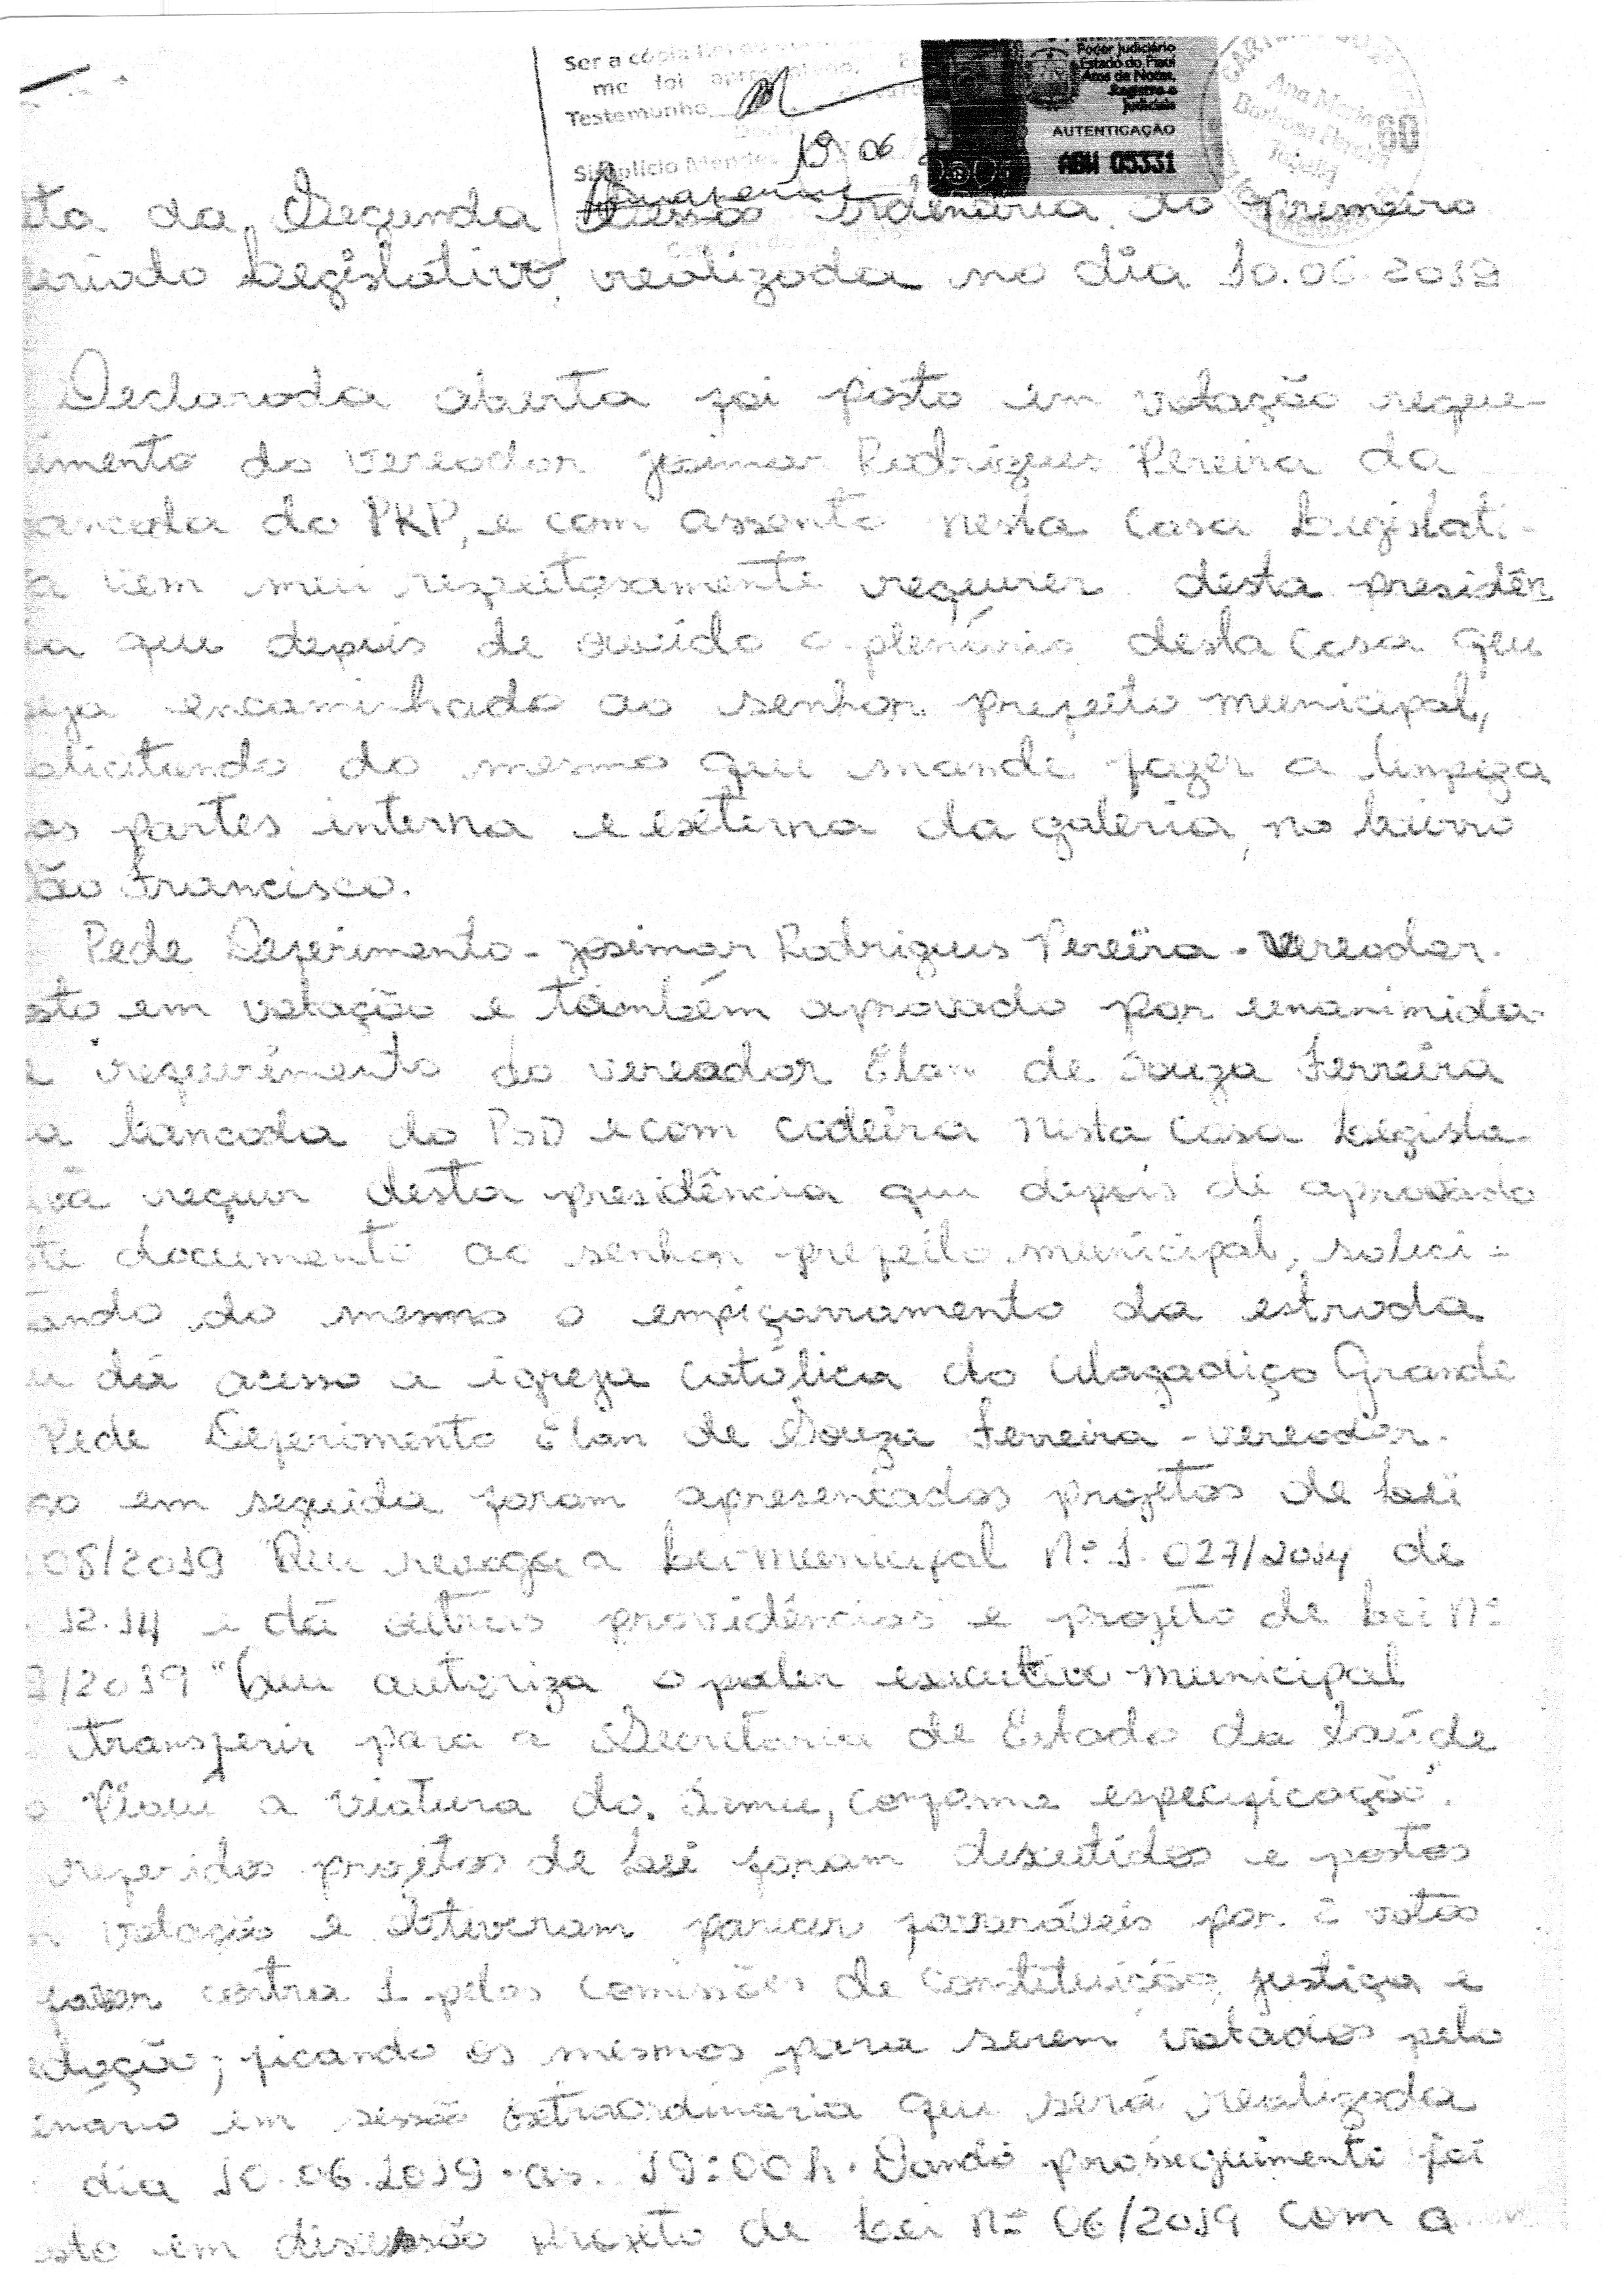 Ser a cópia fiel do
me foi apresentado,
Testemunho
Simplício Mendes
19 06
Poder Judiciário
Estado do Piauí
Atos de Notas,
Registro e
Judiciais
AUTENTICAÇÃO
ABW 05331
Ana Maria
Barbosa Pereira
Tabeliã
60
ta da Segunda Sessão ordenária do Primeiro
eríodo Legislativo, realizada no dia 10.06.2019
Declarada aberta foi posto em votação reque-
imento do vereador Josimar Rodrigues Pereira da
ancada do PRP, e com assento nesta Casa Legislati-
a vem mui respeitosamente requerer desta presidên
ia que depois de ouvido o plenário desta Casa que
eja encaminhado ao senhor prefeito municipal,
olicitando do mesmo que mande fazer a limpeza
as partes interna e externa da galeria, no bairro
ão Francisco.
Pede Deferimento - Josimar Rodrigues Pereira - Vereador.
sto em votação e também aprovado por unanimida-
e requerimento do vereador Elan de Souza Ferreira
a bancada do PSD e com cadeira nesta Casa Legisla-
iva requer desta presidência que depois de aprovado
ste documento ao senhor prefeito municipal, solici-
ando do mesmo o empiçarramento da estrada
u dá acesso a igreja católica do Alagadiço Grande
Pede Deferimento Elan de Souza Ferreira - vereador.
go em seguida foram apresentados projetos de Lei
08/2019 "Que revoga a Lei municipal Nº 1.027/2014 de
12.14 e dá outras providências" e projeto de Lei Nº
9/2019 "Que autoriza o poder executivo municipal
transferir para a Secretaria de Estado da Saúde
o Piauí a viatura do Samu, conforme especificação".
referidos projetos de Lei foram discutidos e postos
m votação e obtiveram parecer favoráveis por 2 votos
favor contra 1 pelas Comissões de Constituição, justiça e
edação; ficando os mesmos para serem votados pelo
enário em sessão extraordinária que será realizada
dia 10.06.2019 as 19:00 h. Dando prosseguimento foi
sto em discussão projeto de Lei Nº 06/2019 com a